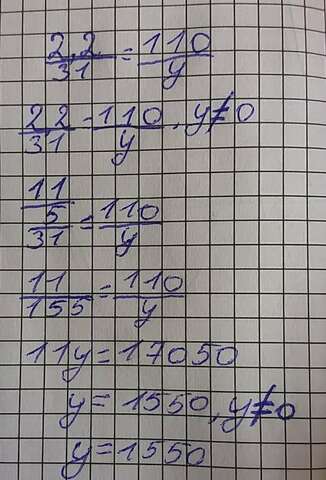 2,2/31 = 110/y
2,2/31 = 110/y, y≠0
11/5/31 = 110/y
11/155 = 110/y
11y = 17050
y = 1550, y≠0
y = 1550